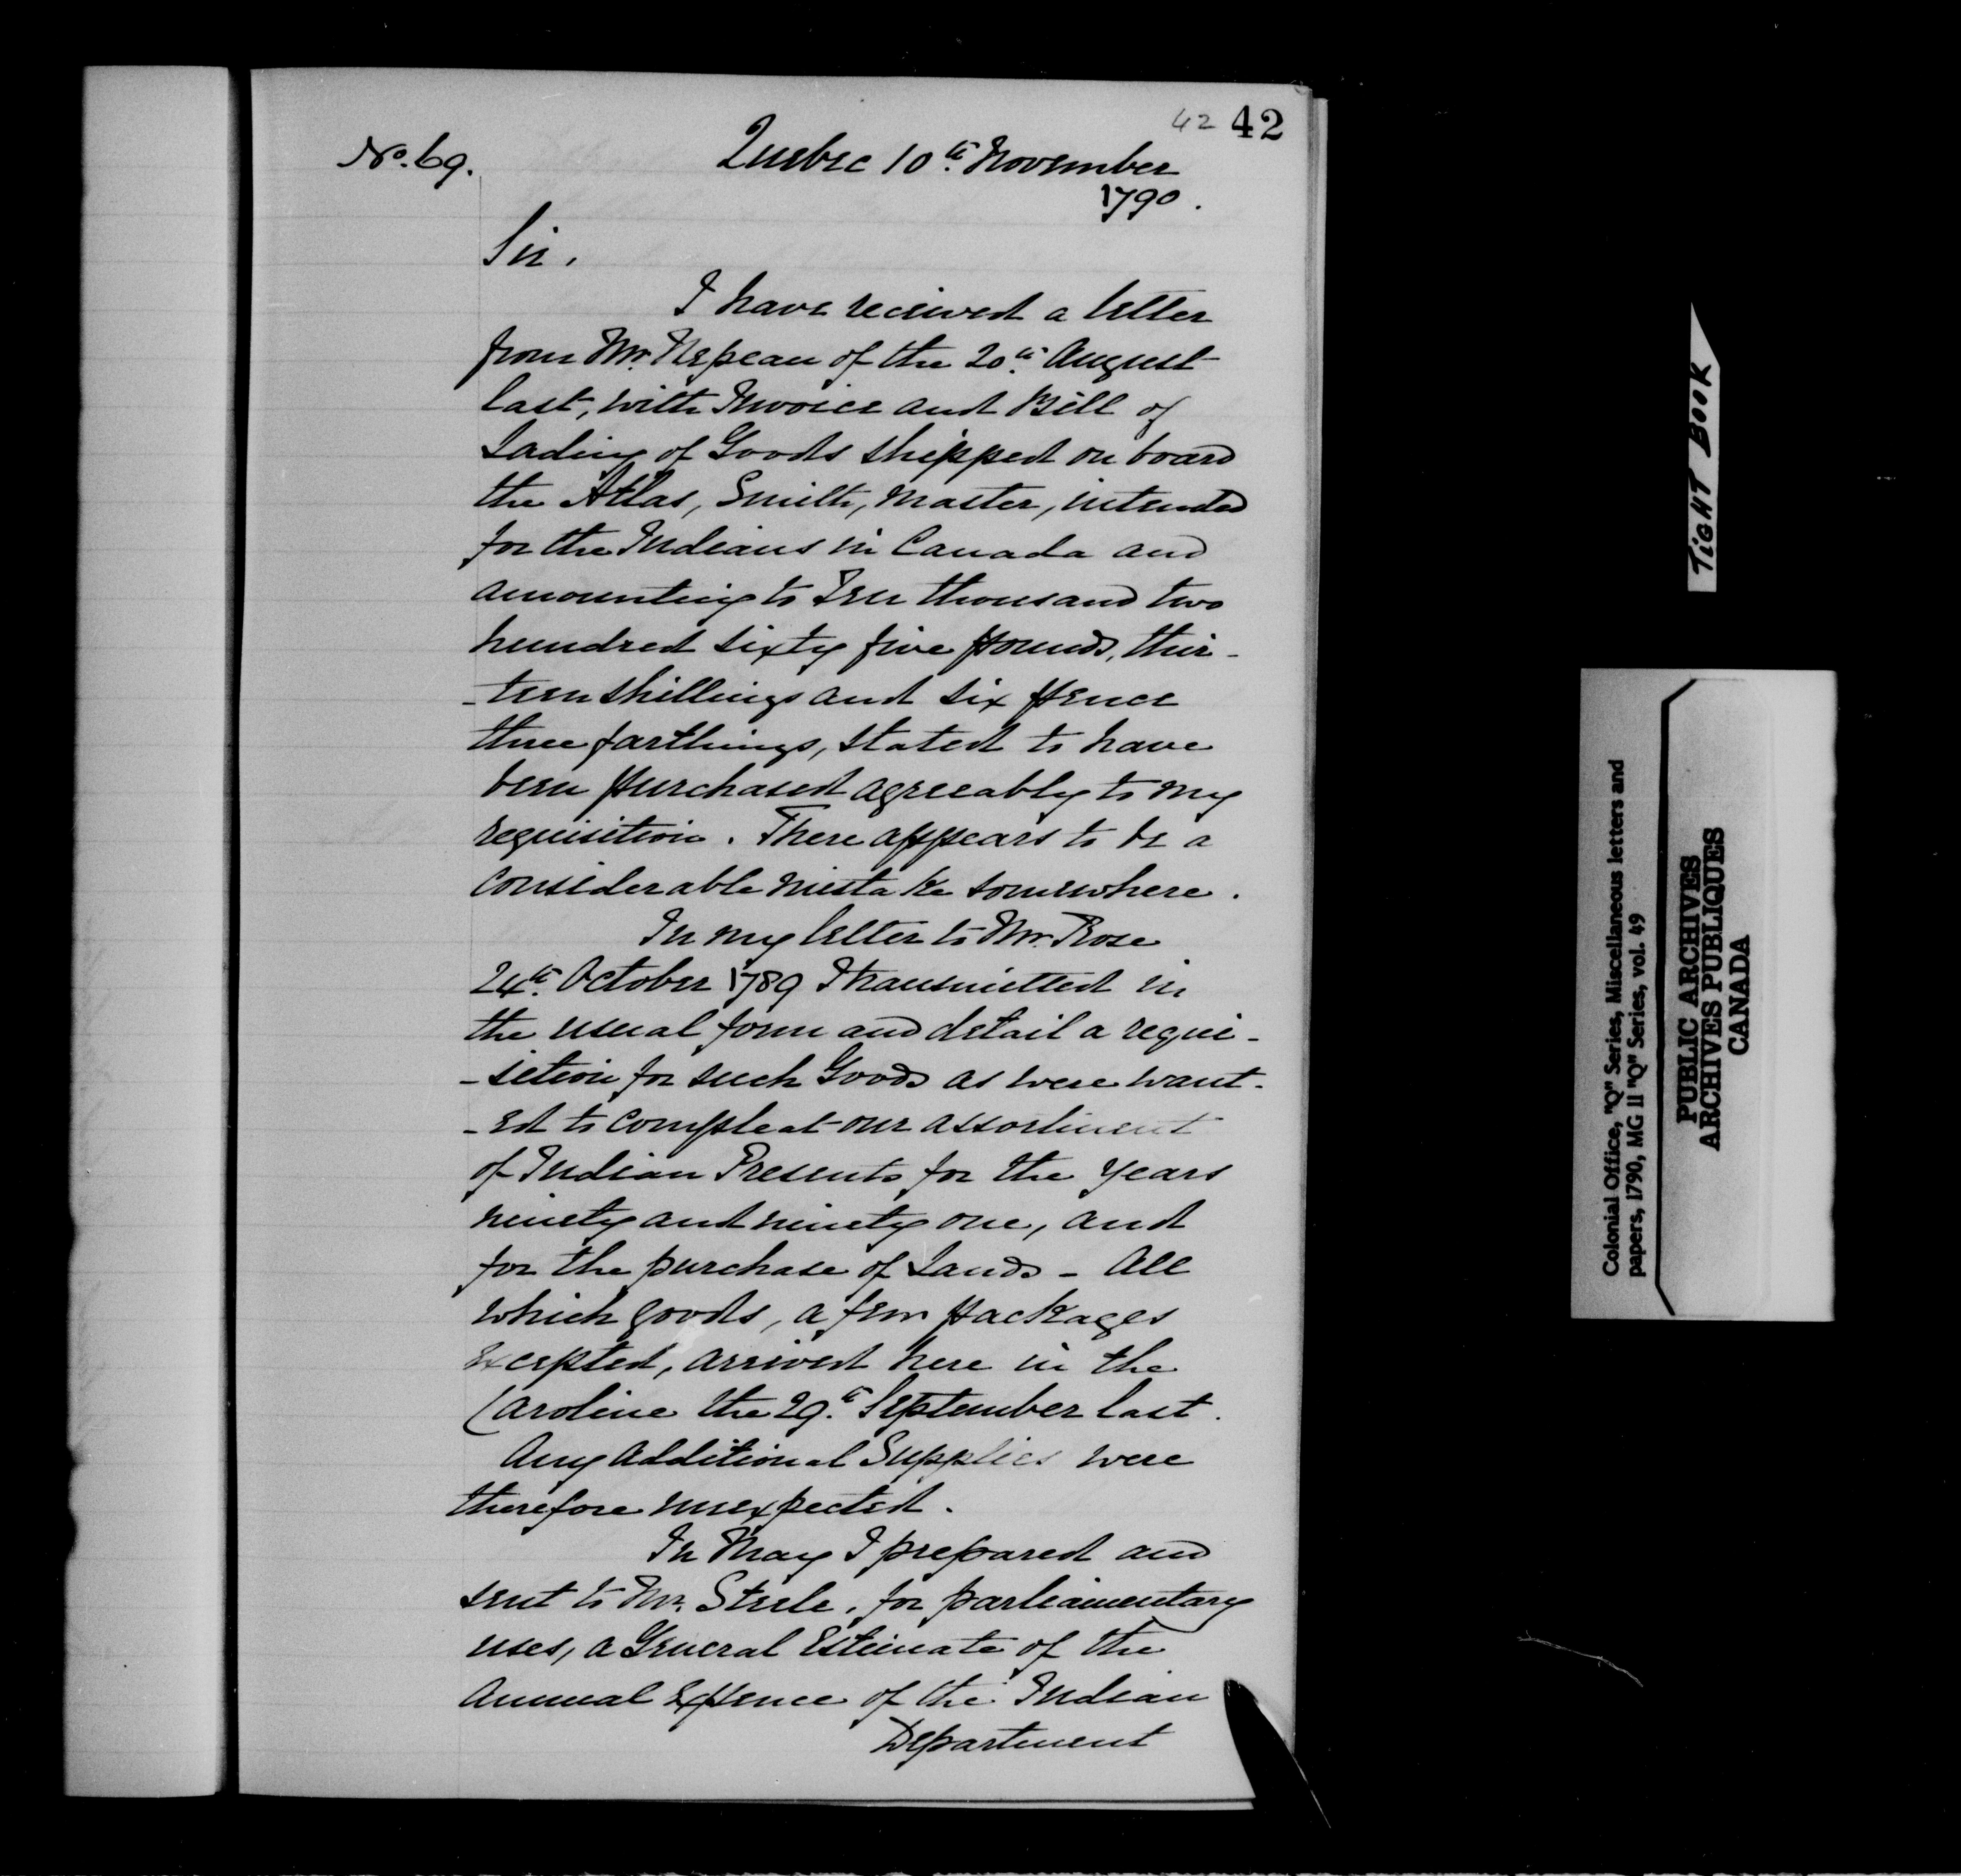 42 42
No. 69.
Quebec 10th. November
1790.
Sir,
I have recieved a letter
from Mr. Nepean of the 20th. August
last, with Invoice and Bill of
Lading of Goods shipped on board
the Atlas, Smith, Master, intended
for the Indians in Canada and
amounting to Ten thousand two
hundred sixty five pounds, thir-
-teen shillings and six pence
three farthings, stated to have
been purchased agreeably to my
requisition. There appears to be a
considerable mistake somewhere.
In my letter to Mr. Rose
24th. October 1789 I transmitted in
the usual form and detail a requi-
-sition for such Goods as were want-
-ed to compleat our assortment
of Indian Presents for the years
ninety and ninety one, and
for the purchase of Lands - All
which goods, a few packages
excepted, arrived here in the
Caroline the 29th. September last.
Any additional Supplies were
therefore unexpected.
In May I prepared and
sent to Mr. Steele, for parliamentary
uses, a General Estimate of the
annual Expence of the Indian
Department
TIGHT BOOK
Colonial Office, "Q" Series, Miscellaneous letters and
papers, 1790, MG 11 "Q" Series, vol. 49
PUBLIC ARCHIVES
ARCHIVES PUBLIQUES
CANADA